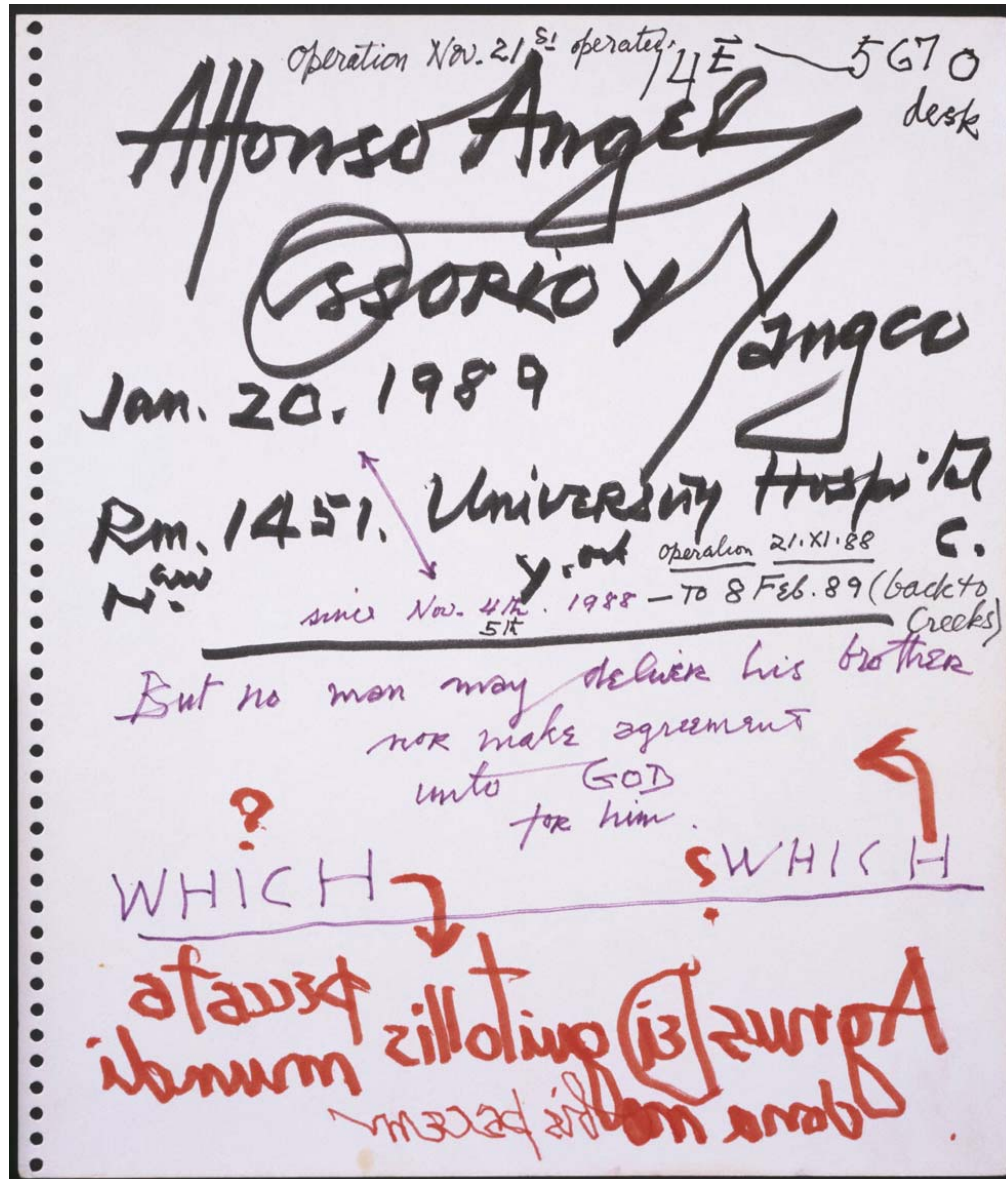 operation Nov. 21st operated. 14E — 5670
desk
Alfonso Angel
Ossorio y Yangco
Jan. 20. 1989
Rm. 1451. University Hospital
N. Y. C.
operation 21.XI.88
since Nov. 4th. 1988 — TO 8 Feb. 89 (back to
5th Creeks)
But no man may deliver his brother
nor make agreement
unto GOD
for him.
?
WHICH ? WHICH
Agnus Dei qui tollis peccata
mundi
dona nobis pacem